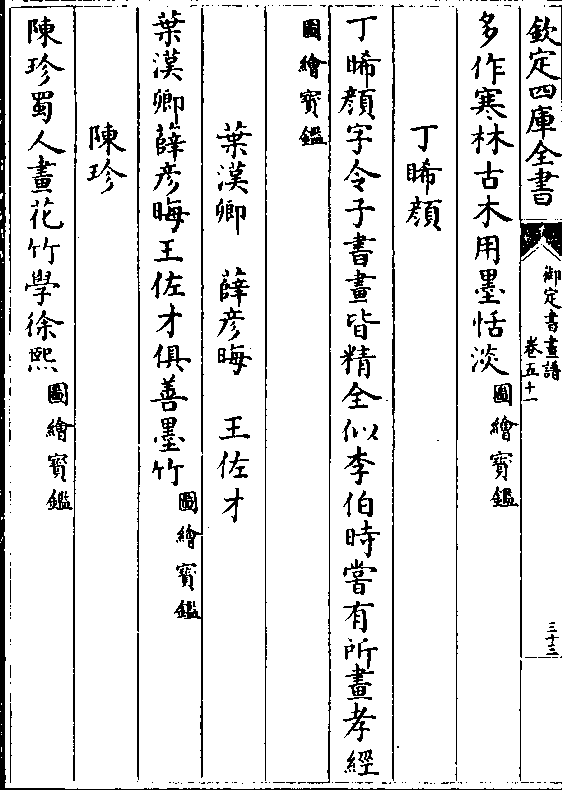 欽定四庫全書
御定書畫譜
卷五十一
三十三
多作寒林古木用墨恬淡圖繪寳鑑
丁晞顔
丁晞顔字令子書畫皆精全似李伯時嘗有所畫孝經
圖繪寳鑑
葉漢卿 薛彦晦 王佐才
葉漢卿薛彦晦王佐才俱善墨竹圖繪寳鑑
陳珍
陳珍蜀人畫花竹學徐熙圖繪寳鑑